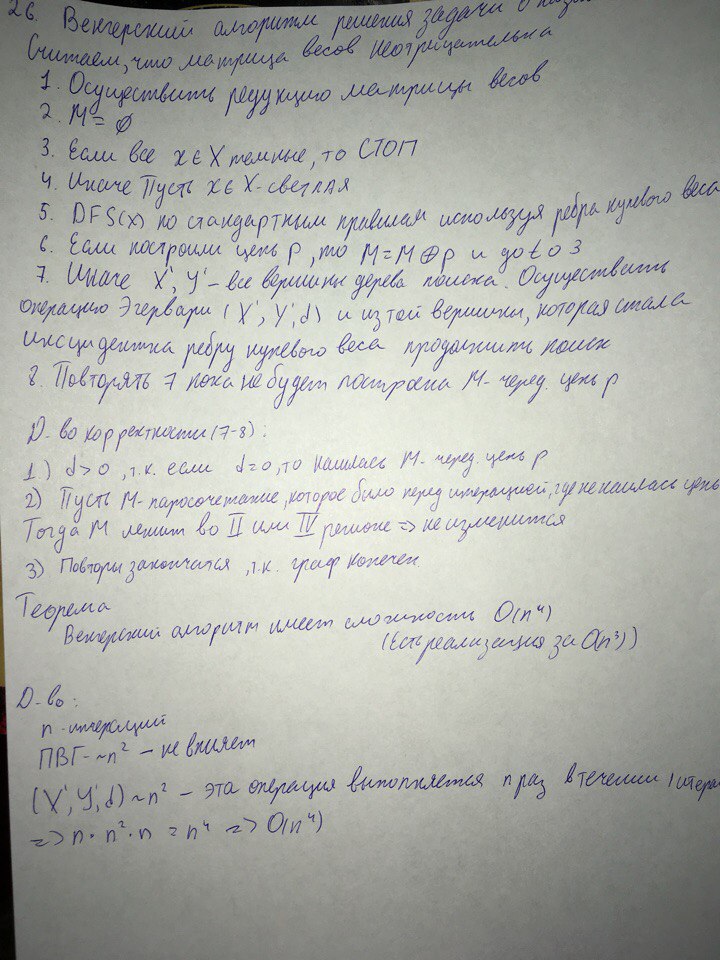 26. Венгерский алгоритм решения задачи о
Считаем, что матрица весов неотрицательна
1. Осуществить редукцию матрицы весов
2. M = ∅
3. Если все x ∈ X темные, то СТОП
4. Иначе Пусть x ∈ X - светлая
5. DFS(x) по стандартным правилам используя ребра нулевого веса
6. Если построили цепь p, то M = M ⊕ p и goto 3
7. Иначе X', Y' - все вершины дерева поиска. Осуществить
операцию Эгервари (X', Y', d) и из той вершины, которая стала
инсцидентна ребру нулевого веса продолжить поиск
8. Повторять 7 пока не будет построена M- черед. цепь p
Д-во корректности (7-8):
1) d>0, т.к. если d=0, то нашлась M- черед. цепь p
2) Пусть M- паросочетание, которое было перед итерацией, где не нашлась цепь
Тогда M лежит во II или IV регионе => не изменится
3) Повторы закончатся, т.к. граф конечен.
Теорема
Венгерский алгоритм имеет сложность O(n⁴)
(Есть реализация за O(n³))
Д-во:
n - итераций
ПВГ - ~n² - не влияет
(X', Y', d) ~ n² - эта операция выполняется n раз в течении 1 итера
=> n · n² · n = n⁴ => O(n⁴)